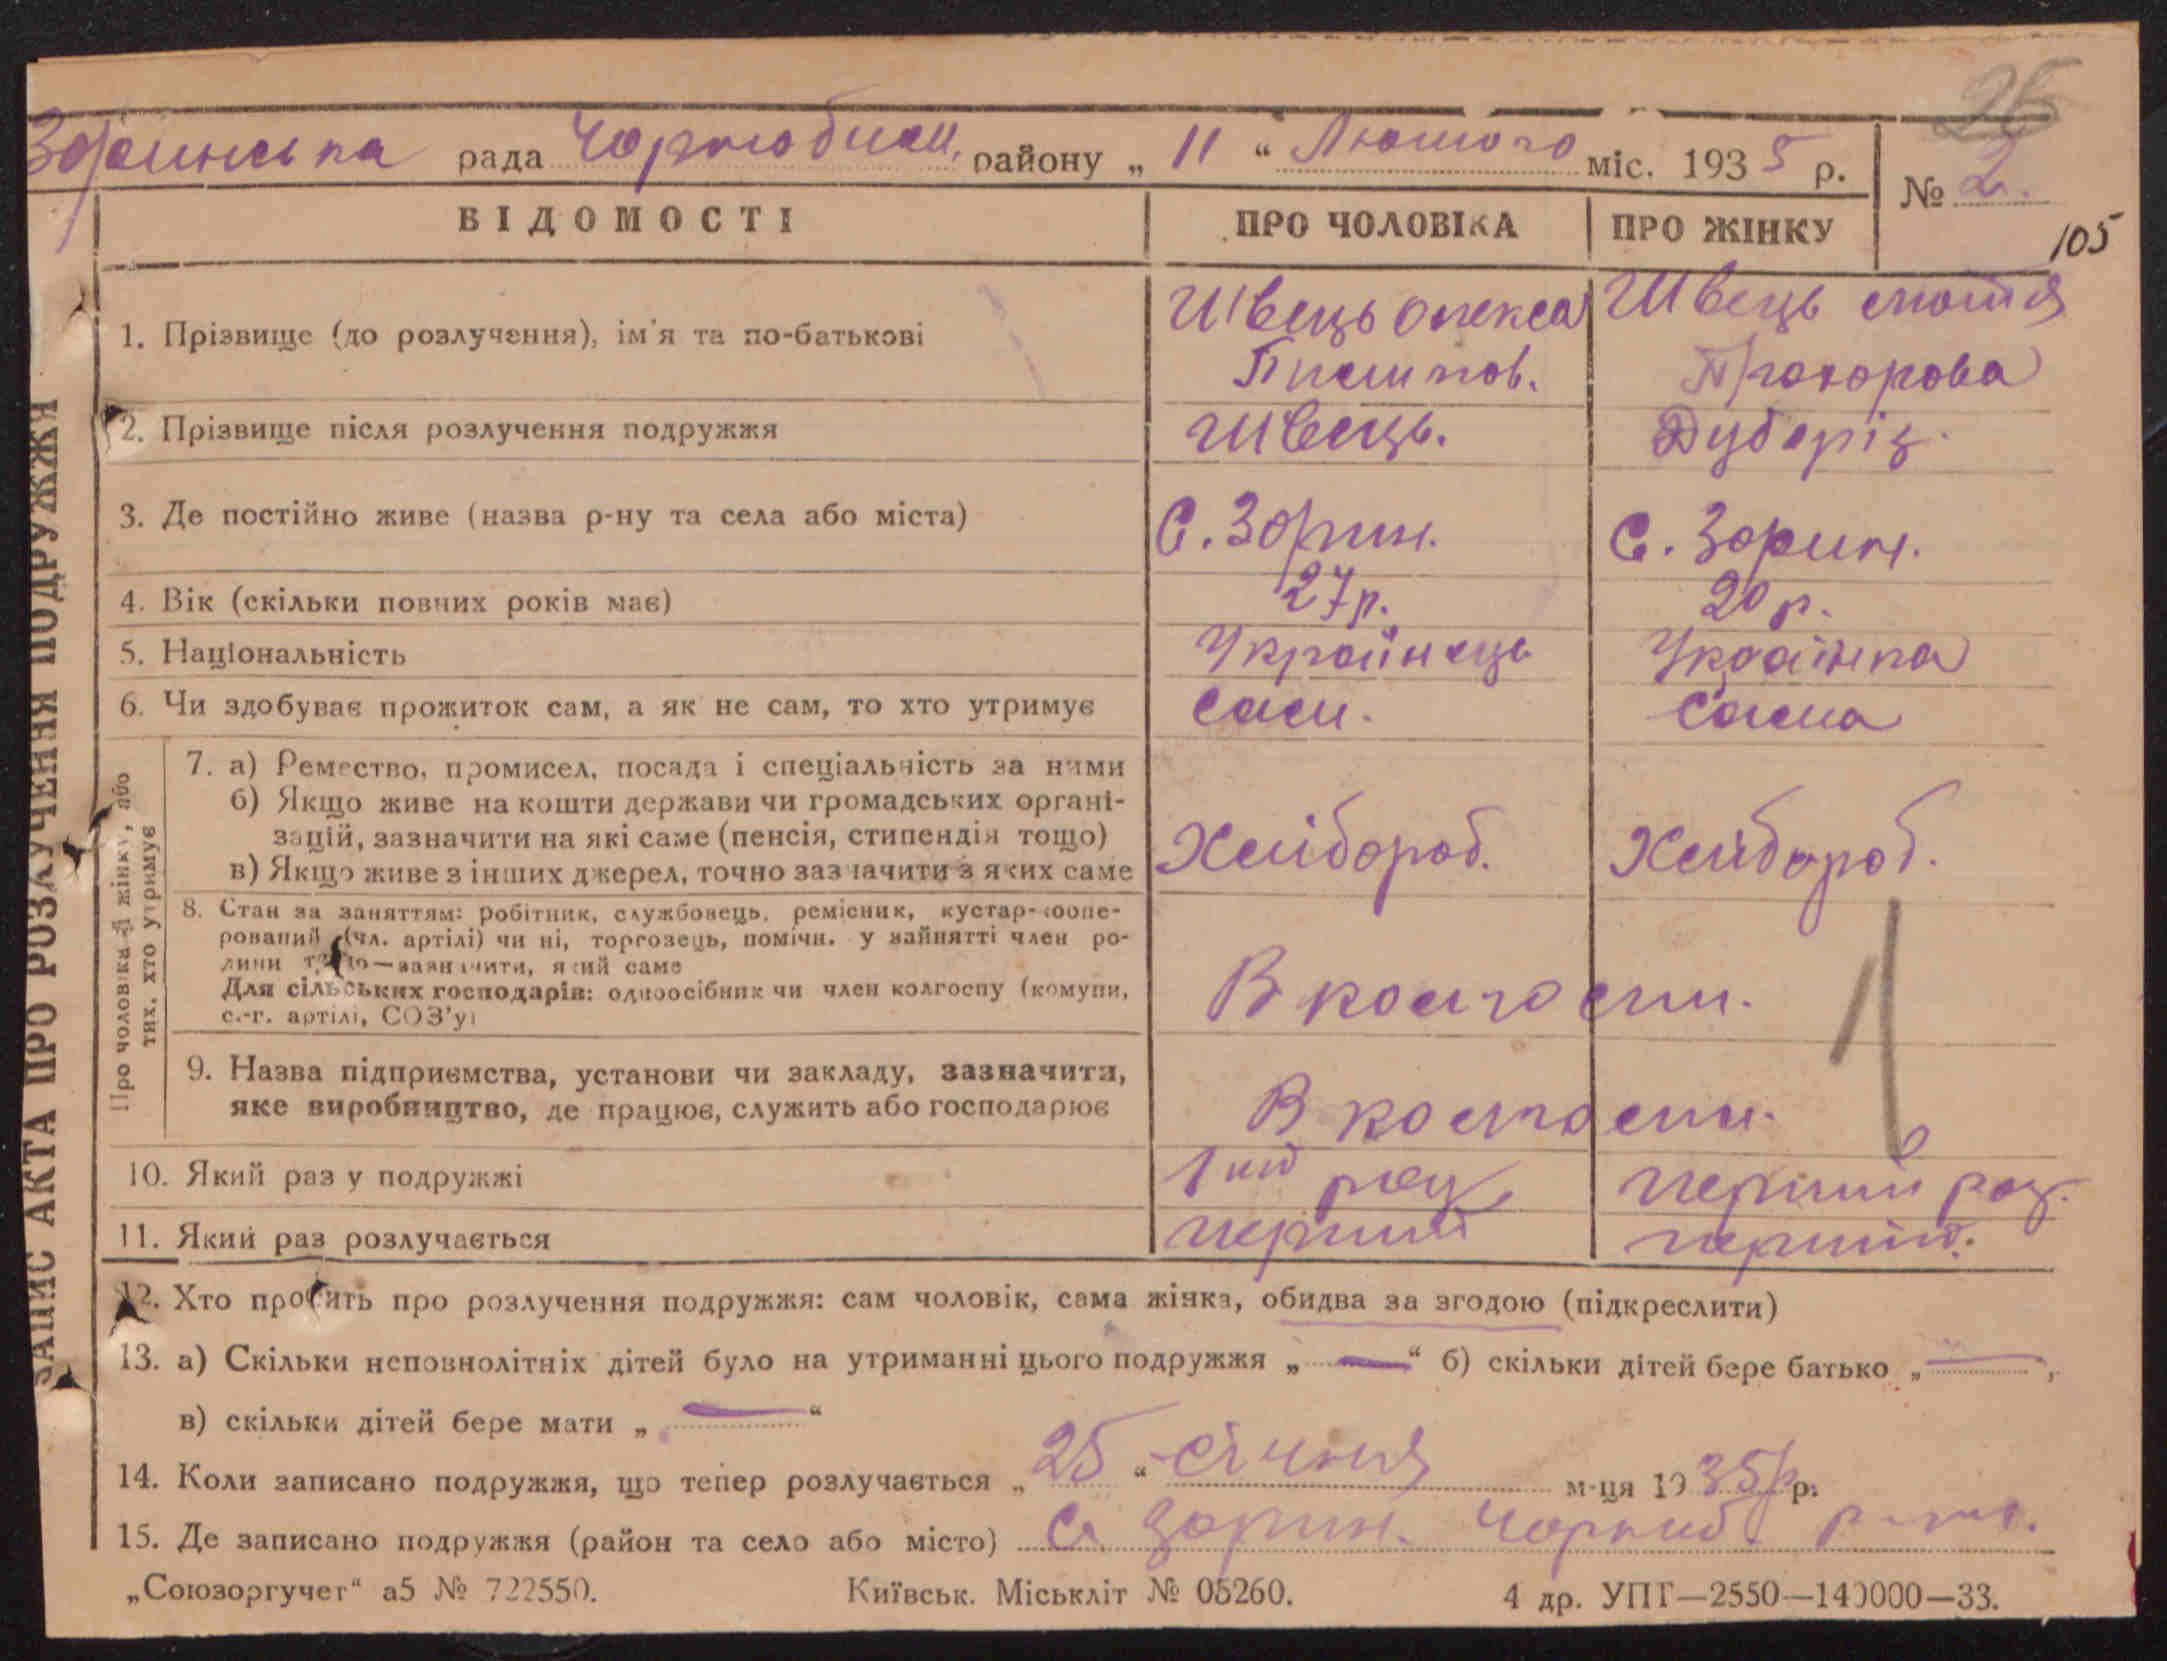 26
Зоринська рада Чорнобил. району „ 11 “ Лютого міс. 1935 р.
№ 2.
105
ВІДОМОСТІ
ПРО ЧОЛОВІКА
ПРО ЖІНКУ
ЗАПИС АКТА ПРО РОЗЛУЧЕННЯ ПОДРУЖЖЯ
1. Прізвище (до розлучення), ім'я та по-батькові
Швець Олекса
Пилипов.
Швець
Прохорова
2. Прізвище після розлучення подружжя
Швець.
3. Де постійно живе (назва р-ну та села або міста)
С. Зорин.
С. Зорин.
4. Вік (скільки повних років має)
27р.
20 р.
5. Національність
Українець
Українка
6. Чи здобуває прожиток сам, а як не сам, то хто утримує
Сам.
Сама
Про чоловіка й жінку, або
тих, хто утримує
7. а) Ремество, промисел, посада і спеціальність за ними
б) Якщо живе на кошти держави чи громадських органі-
зацій, зазначити на які саме (пенсія, стипендія тощо)
в) Якщо живе з інших джерел, точно зазначити з яких саме
Хлібороб.
Хлібороб.
8. Стан за заняттям: робітник, службовець, ремісник, кустар-коопе-
рований (чл. артілі) чи ні, торговець, помічн. у зайнятті член ро-
дини тощо—зазначити, який саме
Для сільських господарів: одноосібник чи член колгоспу (комуни,
с.-г. артілі, СОЗ'у)
В колгоспи.
9. Назва підприємства, установи чи закладу, зазначити,
яке виробництво, де працює, служить або господарює
В колгоспи.
10. Який раз у подружжі
1ий раз,
перший раз.
11. Який раз розлучається
перший
перший.
12. Хто просить про розлучення подружжя: сам чоловік, сама жінка, обидва за згодою (підкреслити)
13. а) Скільки неповнолітніх дітей було на утриманні цього подружжя „ — “ б) скільки дітей бере батько „ — ,
в) скільки дітей бере мати „ — “
14. Коли записано подружжя, що тепер розлучається „ 25 “ січня м-ця 1935р р.
15. Де записано подружжя (район та село або місто) С. Зорин. Чорноб. р-ну.
„Союзоргучет“ а5 № 722550.
Київськ. Міськліт № 05260.
4 др. УПТ—2550—140000—33.